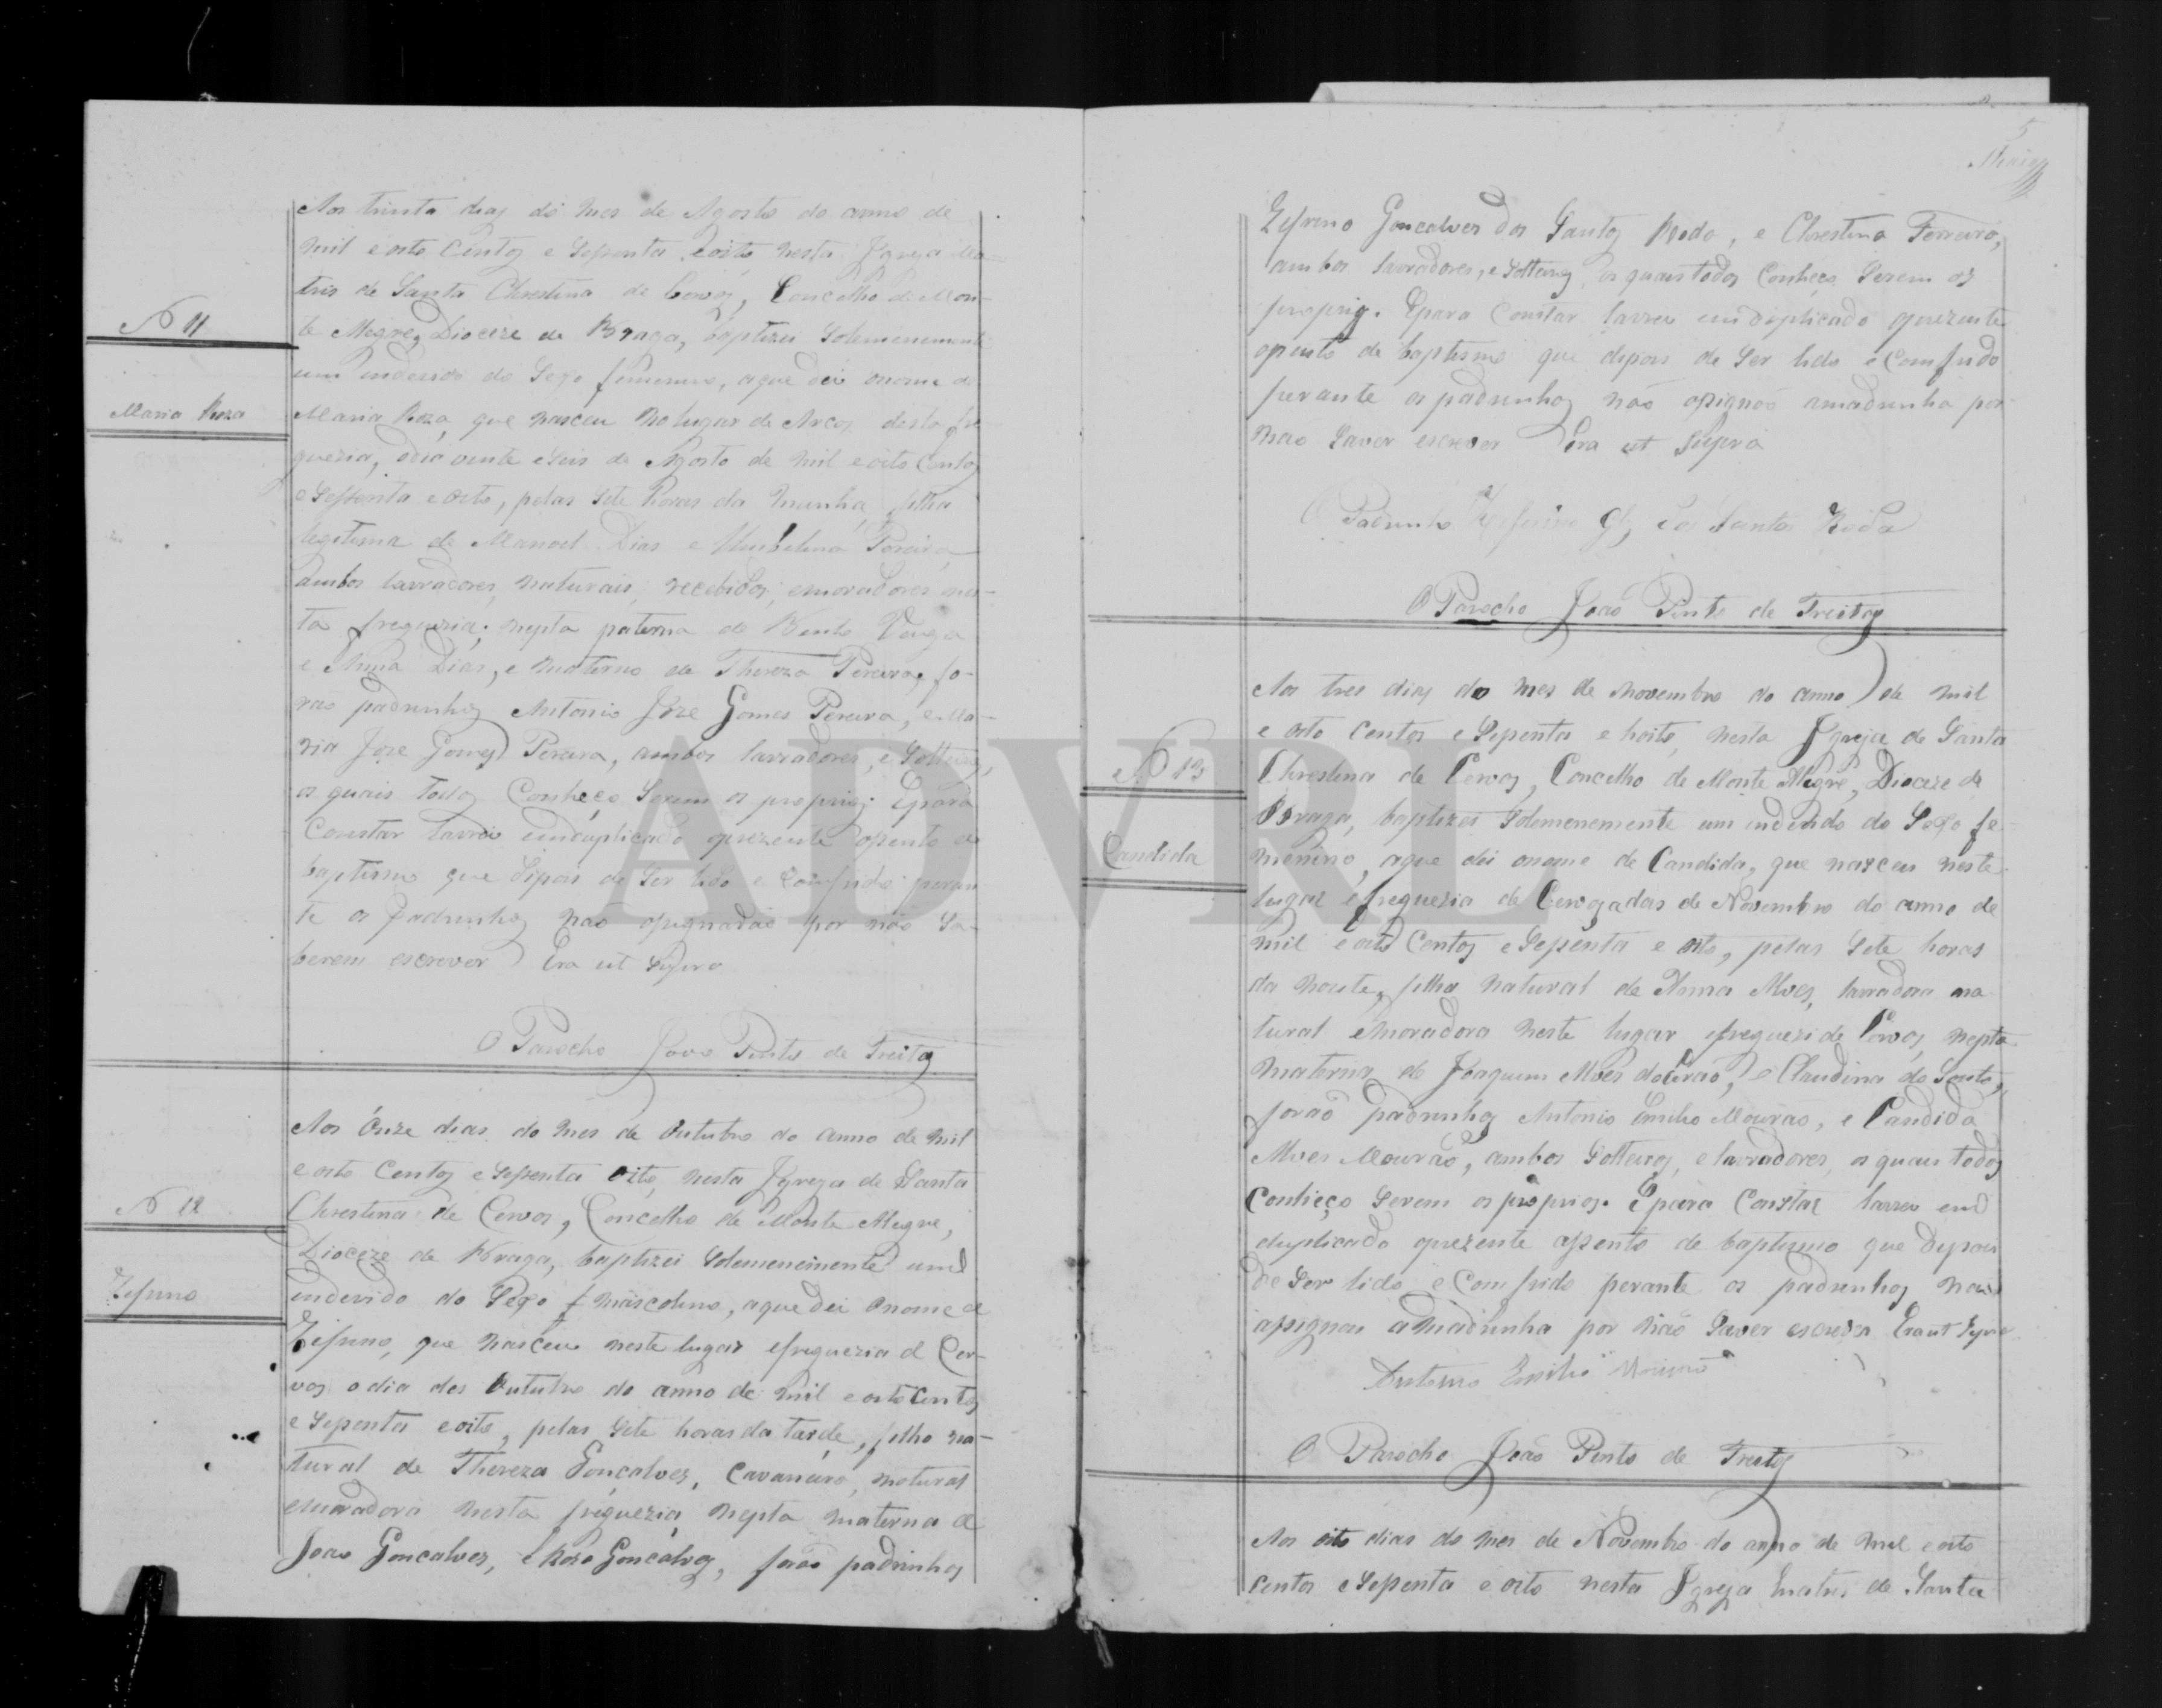 Aos trinta dias do mes de Agosto do anno de
mil e oito Centos e Sessenta e oito nesta Igreja Ma-
tris de Santa Chrestina de Cervos, Concelho de Mon-
N 11
te Alegre, Dioceze de Braga, baptizei Solemnemente
um endevido do Sexo femenino, aque dei onome de
Maria Roza
Maria Roza, que nasceu no lugar de Arcos desta fre
guezia, odia vinte e Seis de Agosto de mil e oito Centos
e Sessenta e oito, pelas Sete horas da manhã, filha
legitima de Manoel Dias e Umbelina Pereira
ambos lavradores, naturais, recebidos, emoradores nes-
ta freguezia; nepta paterna de Bento
e Anna Dias, e materna de Thereza Pereira, fo-
rão padrinhos Antonio Joze Gomes Pereira, e Ma-
ria Joze Gomes Pereira, ambos lavradores, e Solteiros,
os quais todos Conheço Serem os proprios. Epara
Constar lavrei emduplicado oprezente assento de
baptismo que dipois de Ser lido e Comfrido peran
te os padrinhos não assignarão por não Sa-
berem escrever Era ut Supra
O Parocho João Pinto de Freitas
Aos Onze dias do mes de Outubro do anno de mil
e oito Centos e Sessenta oito, nesta Igreja de Santa
N 12
Chrestina de Cervos, Concelho de Monte Alegre,
Dioceze de Braga, baptizei Solemnemente um
Zefrino
endevido do Sexo masculino, aque dei onome de
Zefrino, que nasceu neste lugar efreguezia de Cer-
vos o dia dos Outubro do anno de mil e oito Centos
e Sessenta eoito, pelas Sete horas da tarde, filho na-
tural de Thereza Gonçalves, natural
emoradora nesta freguezia, nepta materna de
João Goncalves, e Roza Goncalves, forão padrinhos
5
Zefrino Goncalves dos Santos Roda, e Chrestina Ferreira,
ambos lavradores, e Solteiros, os quais todos Conheço Serem os
proprios. Epara Constar lavrei em duplicado oprezente
assento de baptismo que depois de Ser lido e Comfrido
perante os padrinhos não assignão amadrinha por
não Saver escrever Era ut Supra
O Padrinho Zeferino Glz dos Santos Roda
O Parocho João Pinto de Freitas
Aos tres dias do mes de Novembro do anno de mil
e oito Centos e Sessenta e hoito, nesta Igreja de Santa
N 13
Chrestina de Cervos, Concelho de Monte Alegre, Dioceze de
Braga, baptizei Solemnemente um endevido do Sexo fe
Candida
menino, aque dei onome de Candida, que nasceu neste
lugar efreguezia de Cervos de Novembro do anno de
mil e oito Centos e Sessenta e oito, pelas Sete horas
da noute, filha natural de Anna Alves, lavradora na
tural emoradora neste lugar efreguezi de Cervos, nepta
materna de Joaquim Alves, e Claudina do Souto,
forão padrinhos Antonio Emilio Mourão, e Candida
Alves Mourão, ambos Solteiros, e lavradores, os quais todos
Conheço Serem os proprios. Epara Constar lavrei em
duplicado oprezente assento de baptismo que depois
de Ser lido e Comfrido perante os padrinhos não
assignou amadrinha por não Saver escrever Era ut Supra
Antonio Emilio Mourão
O Parocho João Pinto de Freitas
Aos oito dias do mes de Novembro do anno de mil e oito
centos e Sessenta e oito nesta Igreja matris de Santa
ADVRL